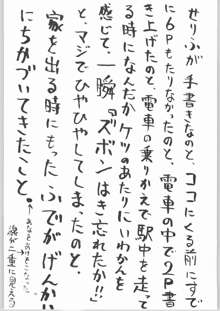 せりふが手書きなのと、ココにくる前にすで
に6Pもたりなかったのと、電車の中で2P書
き上げたのと、電車の乗りかえで駅中を走って
る時になんだかケツのあたりにいわかんを
感じて、一瞬『ズボンはき忘れたか!!』
と、マジでひやひやしてしまったのと、
家を出る時にもった ふでがげんかい
にちかづいてきたこと。